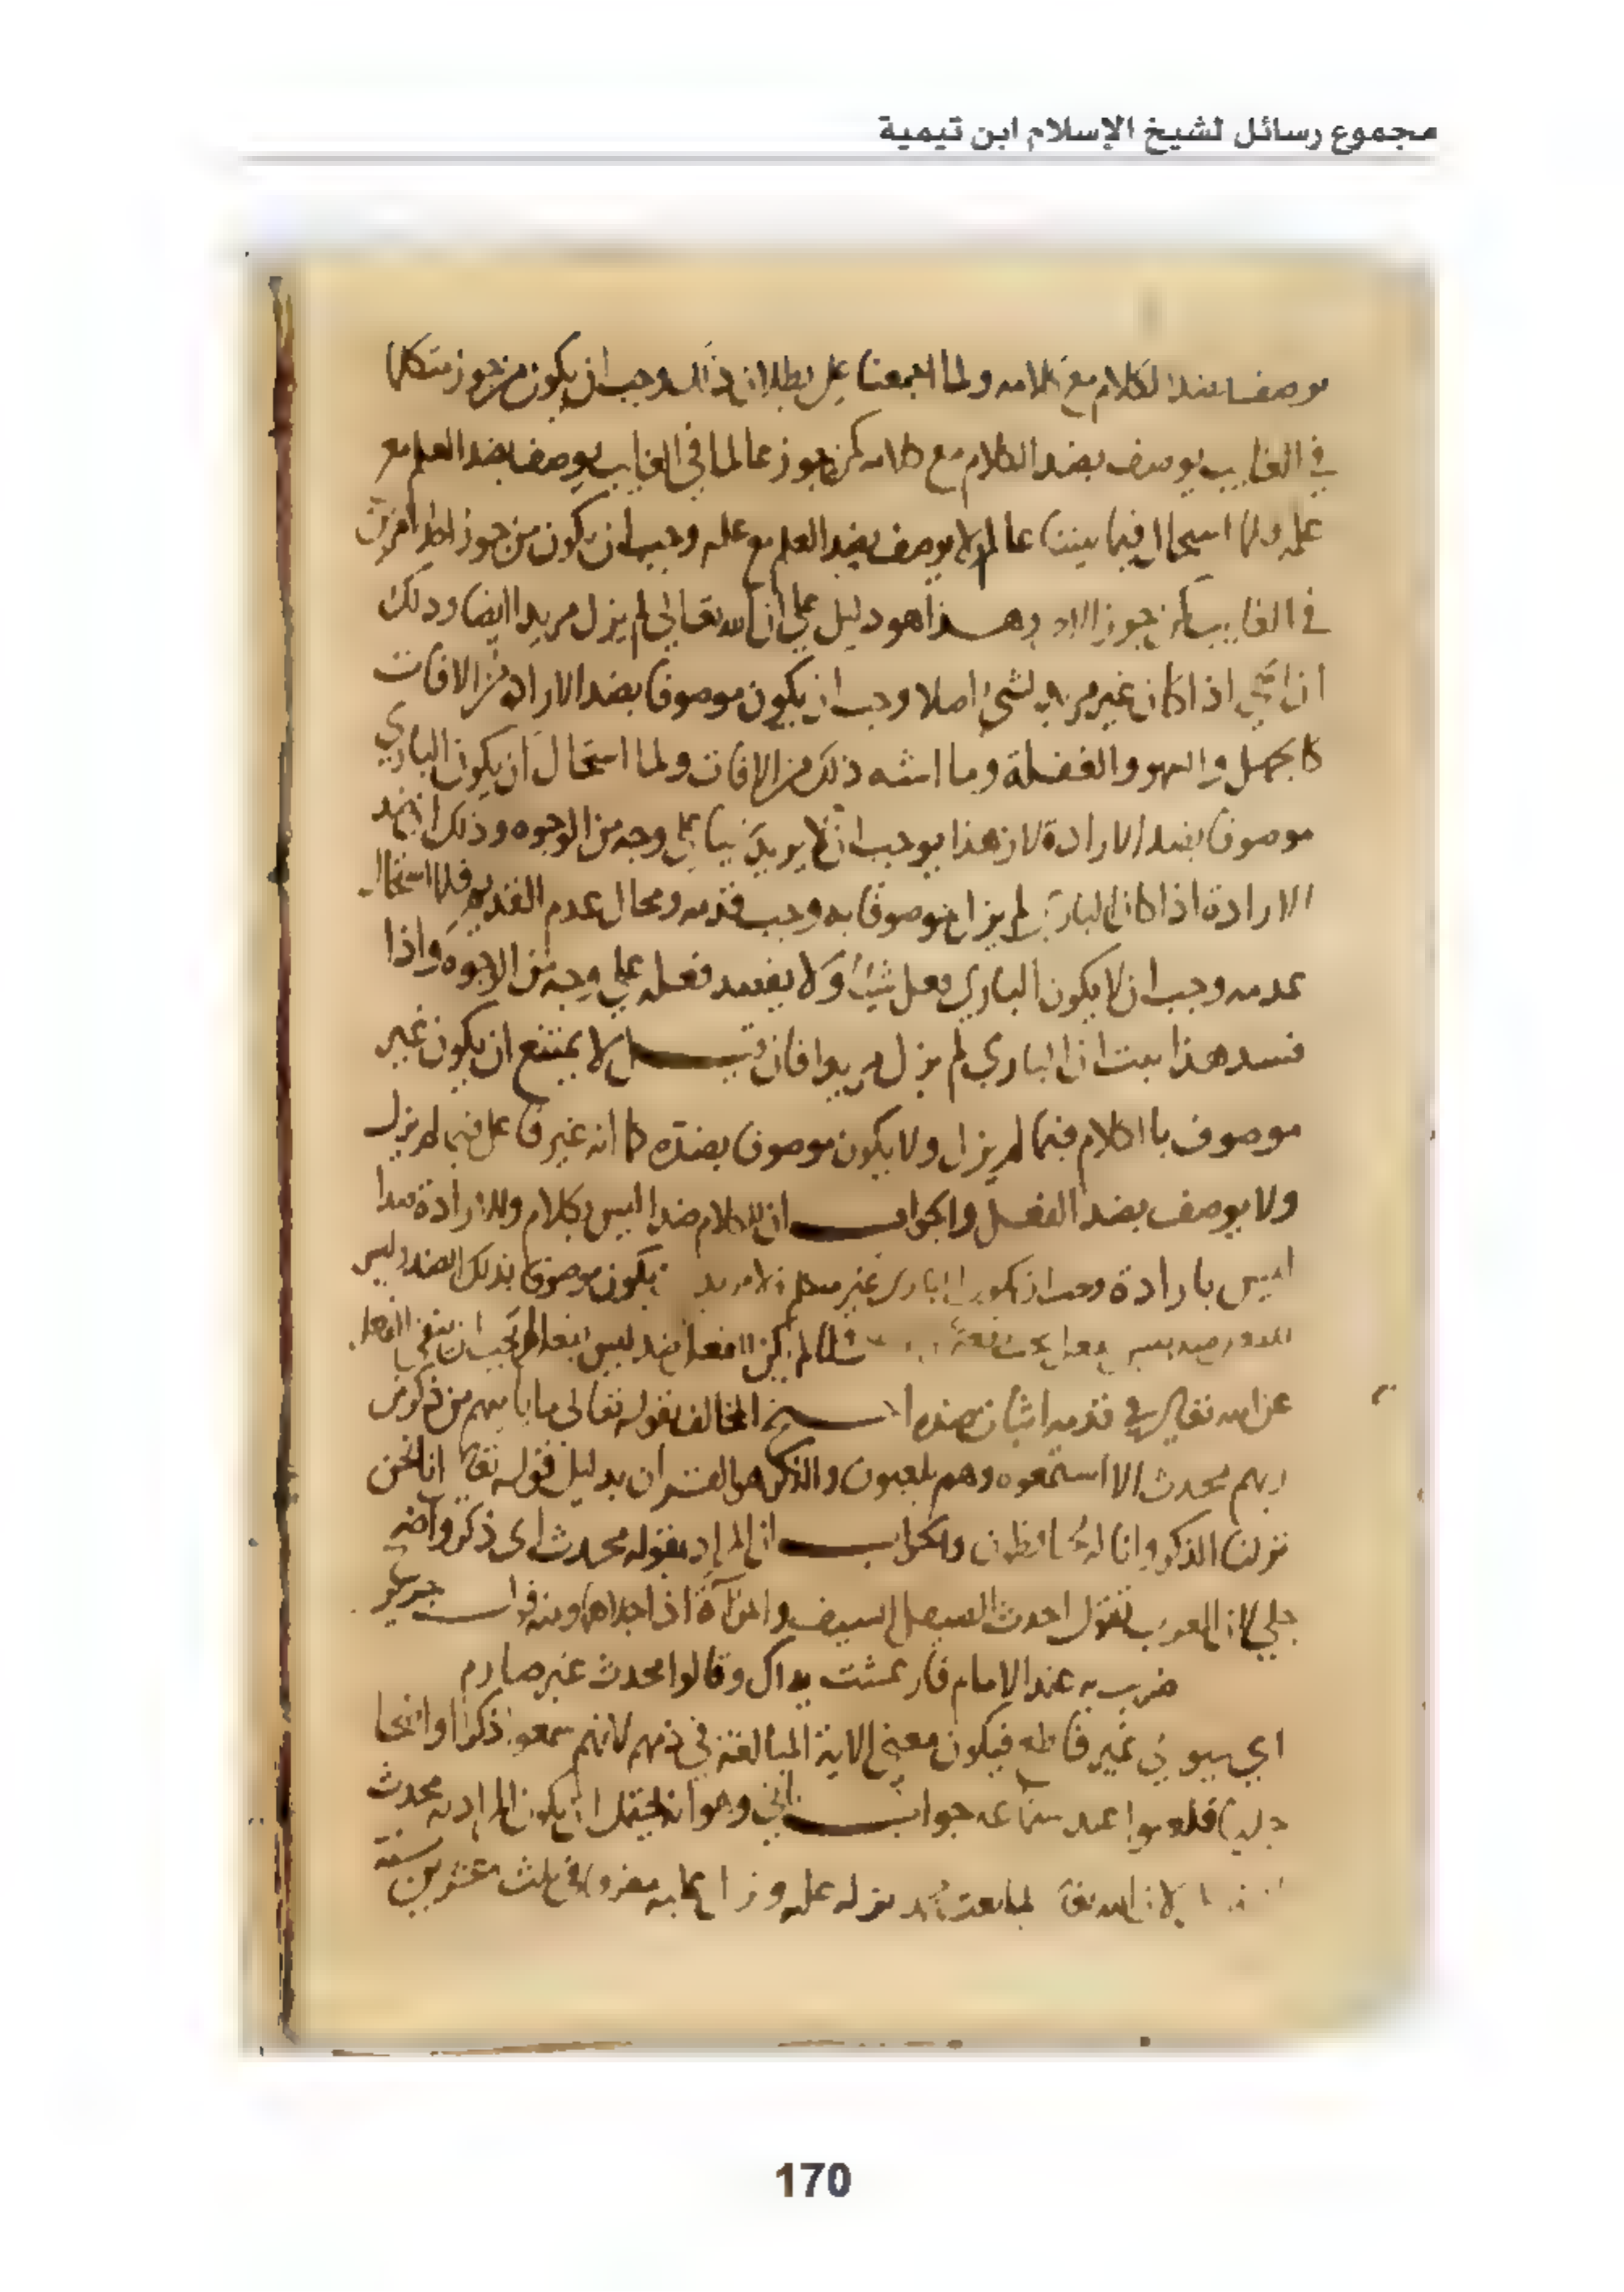 مجموع رسائل لشيخ الإسلام ابن تيمية
يوصف بضد الكلام مع كلامه ولما اجمعنا على بطلان ذلك وجب ان يكون من جوز متكلما
في الغايب يوصف بضد الكلام مع كلامه كمن جوز عالما في الغايب يوصف بضد العلم مع
علمه ولما استحال فيما بيننا عالم لا يوصف بضد العلم مع علمه وجب ان يكون من جوز
في الغايب كمن جوز وهذا هو دليل على ان الله تعالى لم يزل مريدا ايضا وذلك
ان الحي اذا كان غير مريد لشئ اصلا وجب ان يكون موصوفا بضد الارادة من الافات
كالجهل والسهو والغفلة وما اشبه ذلك من الافات ولما استحال ان يكون الباري
موصوفا بضد الارادة لان هذا يوجب ان لا يريد شيا على وجه من الوجوه وذلك ان ضد
الارادة اذا كان الباري لم يزل موصوفا به وجب قدمه ومحال عدم القديم فلما استحال
عدمه وجب ان لا يكون الباري فعل شيئا ولا يعتمد فعله على وجه من الوجوه واذا
فسد هذا ثبت ان الباري لم يزل مريدا فان قيل لا يمتنع ان يكون غير
موصوف بالكلام فيما لم يزل ولا يكون موصوفا بضده كما انه غير فاعل فيما لم يزل
ولا يوصف بضد الفعل والجواب ان للكلام ضدا ليس بكلام وللارادة ضدا
ليس بارادة وجب ان يكون الباري غير متكلم ولا مريد يكون موصوفا بذلك الضد وليس
فلما لم يكن للفعل ضد ليس بفعل لم يجب ان ينفي الفعل
عن الله تعالى في قدمه اثبات ضده احتج المخالف بقوله تعالى ما ياتيهم من ذكر من
ربهم محدث الا استمعوه وهم يلعبون والذكر هو القران بدليل قوله تعالى انا نحن
نزلنا الذكر وانا له لحافظون والجواب ان المراد بقوله محدث اى ذكر واضح
جلي لان العرب تقول احدث الصيقل السيف والمرآة اذا جلاهما ومنه قول جرير
ضرب به عند الامام فارعشت يداك وقالوا محدث غير صارم
اي سيوفي غير قاطع فيكون معنى الاية المبالغة في ذمهم لانهم سمعوا ذكرا واضحا
جليا فلعبوا عند سماعه جواب ثاني وهو انه يحتمل ان يكون المراد به محدث
لان الله تعالى لما بعث محمد نزله عليه مفرقا في ثلث وعشرين سنة
170